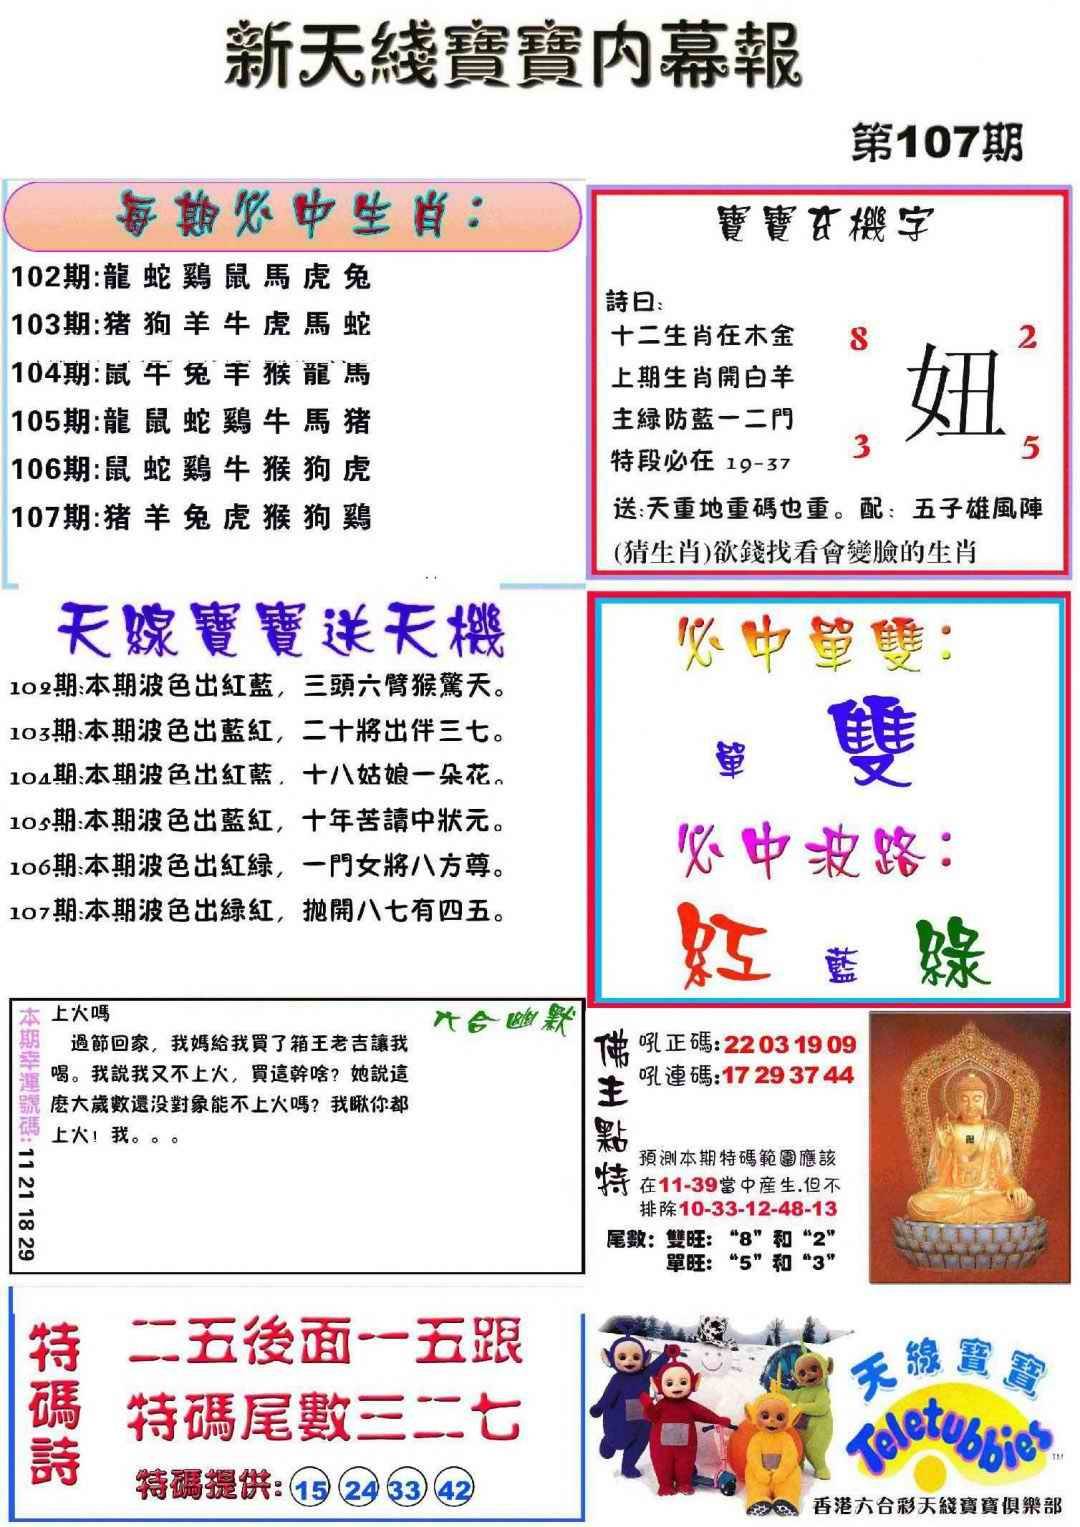 新天綫寶寶内幕報
第107期
每期必中生肖:
102期:龍 蛇 鷄 鼠 馬 虎 兔
103期:猪 狗 羊 牛 虎 馬 蛇
104期:鼠 牛 兔 羊 猴 龍 馬
105期:龍 鼠 蛇 鷄 牛 馬 猪
106期:鼠 蛇 鷄 牛 猴 狗 虎
107期:猪 羊 兔 虎 猴 狗 鷄
寶寶玄機字
詩曰:
十二生肖在木金
上期生肖開白羊
主緑防藍一二門
特段必在 19-37
8 2
妞
3 5
送:天重地重碼也重。配: 五子雄風陣
(猜生肖)欲錢找看會變臉的生肖
天線寶寶送天機
102期:本期波色出紅藍，三頭六臂猴驚天。
103期:本期波色出藍紅，二十將出伴三七。
104期:本期波色出紅藍，十八姑娘一朵花。
105期:本期波色出藍紅，十年苦讀中狀元。
106期:本期波色出紅緑，一門女將八方尊。
107期:本期波色出緑紅，拋開八七有四五。
必中單雙:
單 雙
必中波路:
紅 藍 綠
本期幸運號碼: 11 21 18 29
六合幽默
上火嗎
過節回家，我媽給我買了箱王老吉讓我
喝。我說我又不上火，買這幹啥？她說這
麽大歲數還没對象能不上火嗎？我瞅你都
上火！我。。。
佛主點特
吼正碼:22 03 19 09
吼連碼:17 29 37 44
預測本期特碼範圍應該
在11-39當中産生.但不
排除10-33-12-48-13
尾數: 雙旺: “8”和“2”
單旺: “5”和“3”
特碼詩
二五後面一五跟
特碼尾數三二七
特碼提供: 15 24 33 42
天線寶寶
Teletubbies
TM
香港六合彩天綫寶寶俱樂部